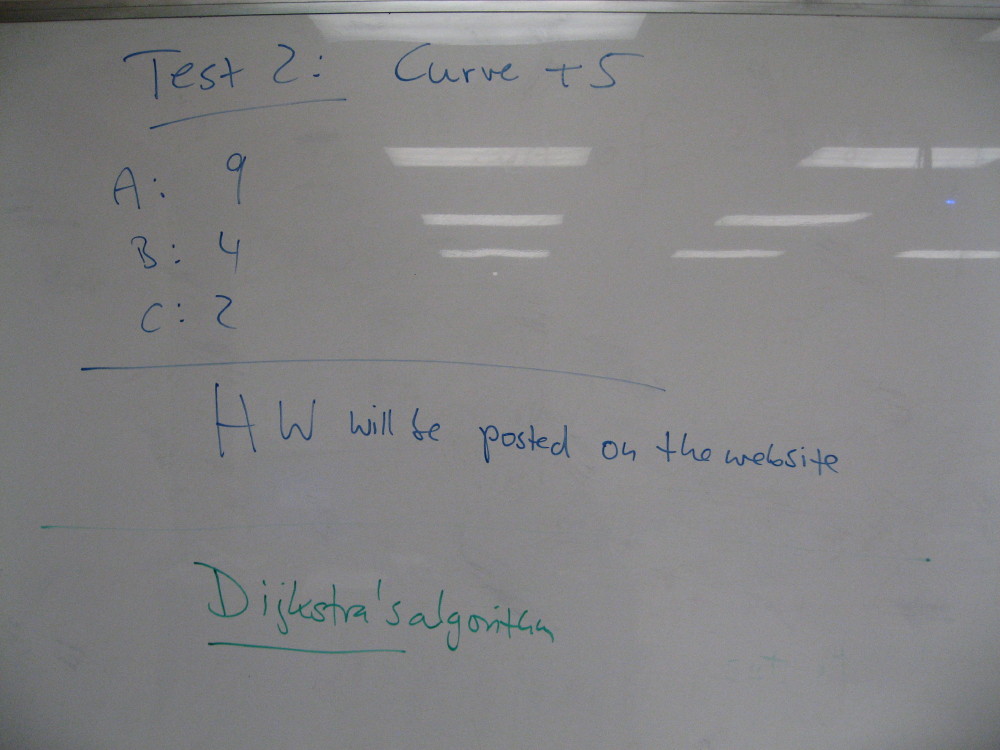 Test 2: Curve +5
A: 9
B: 4
C: 2
HW will be posted on the website
Dijkstra's algorithm